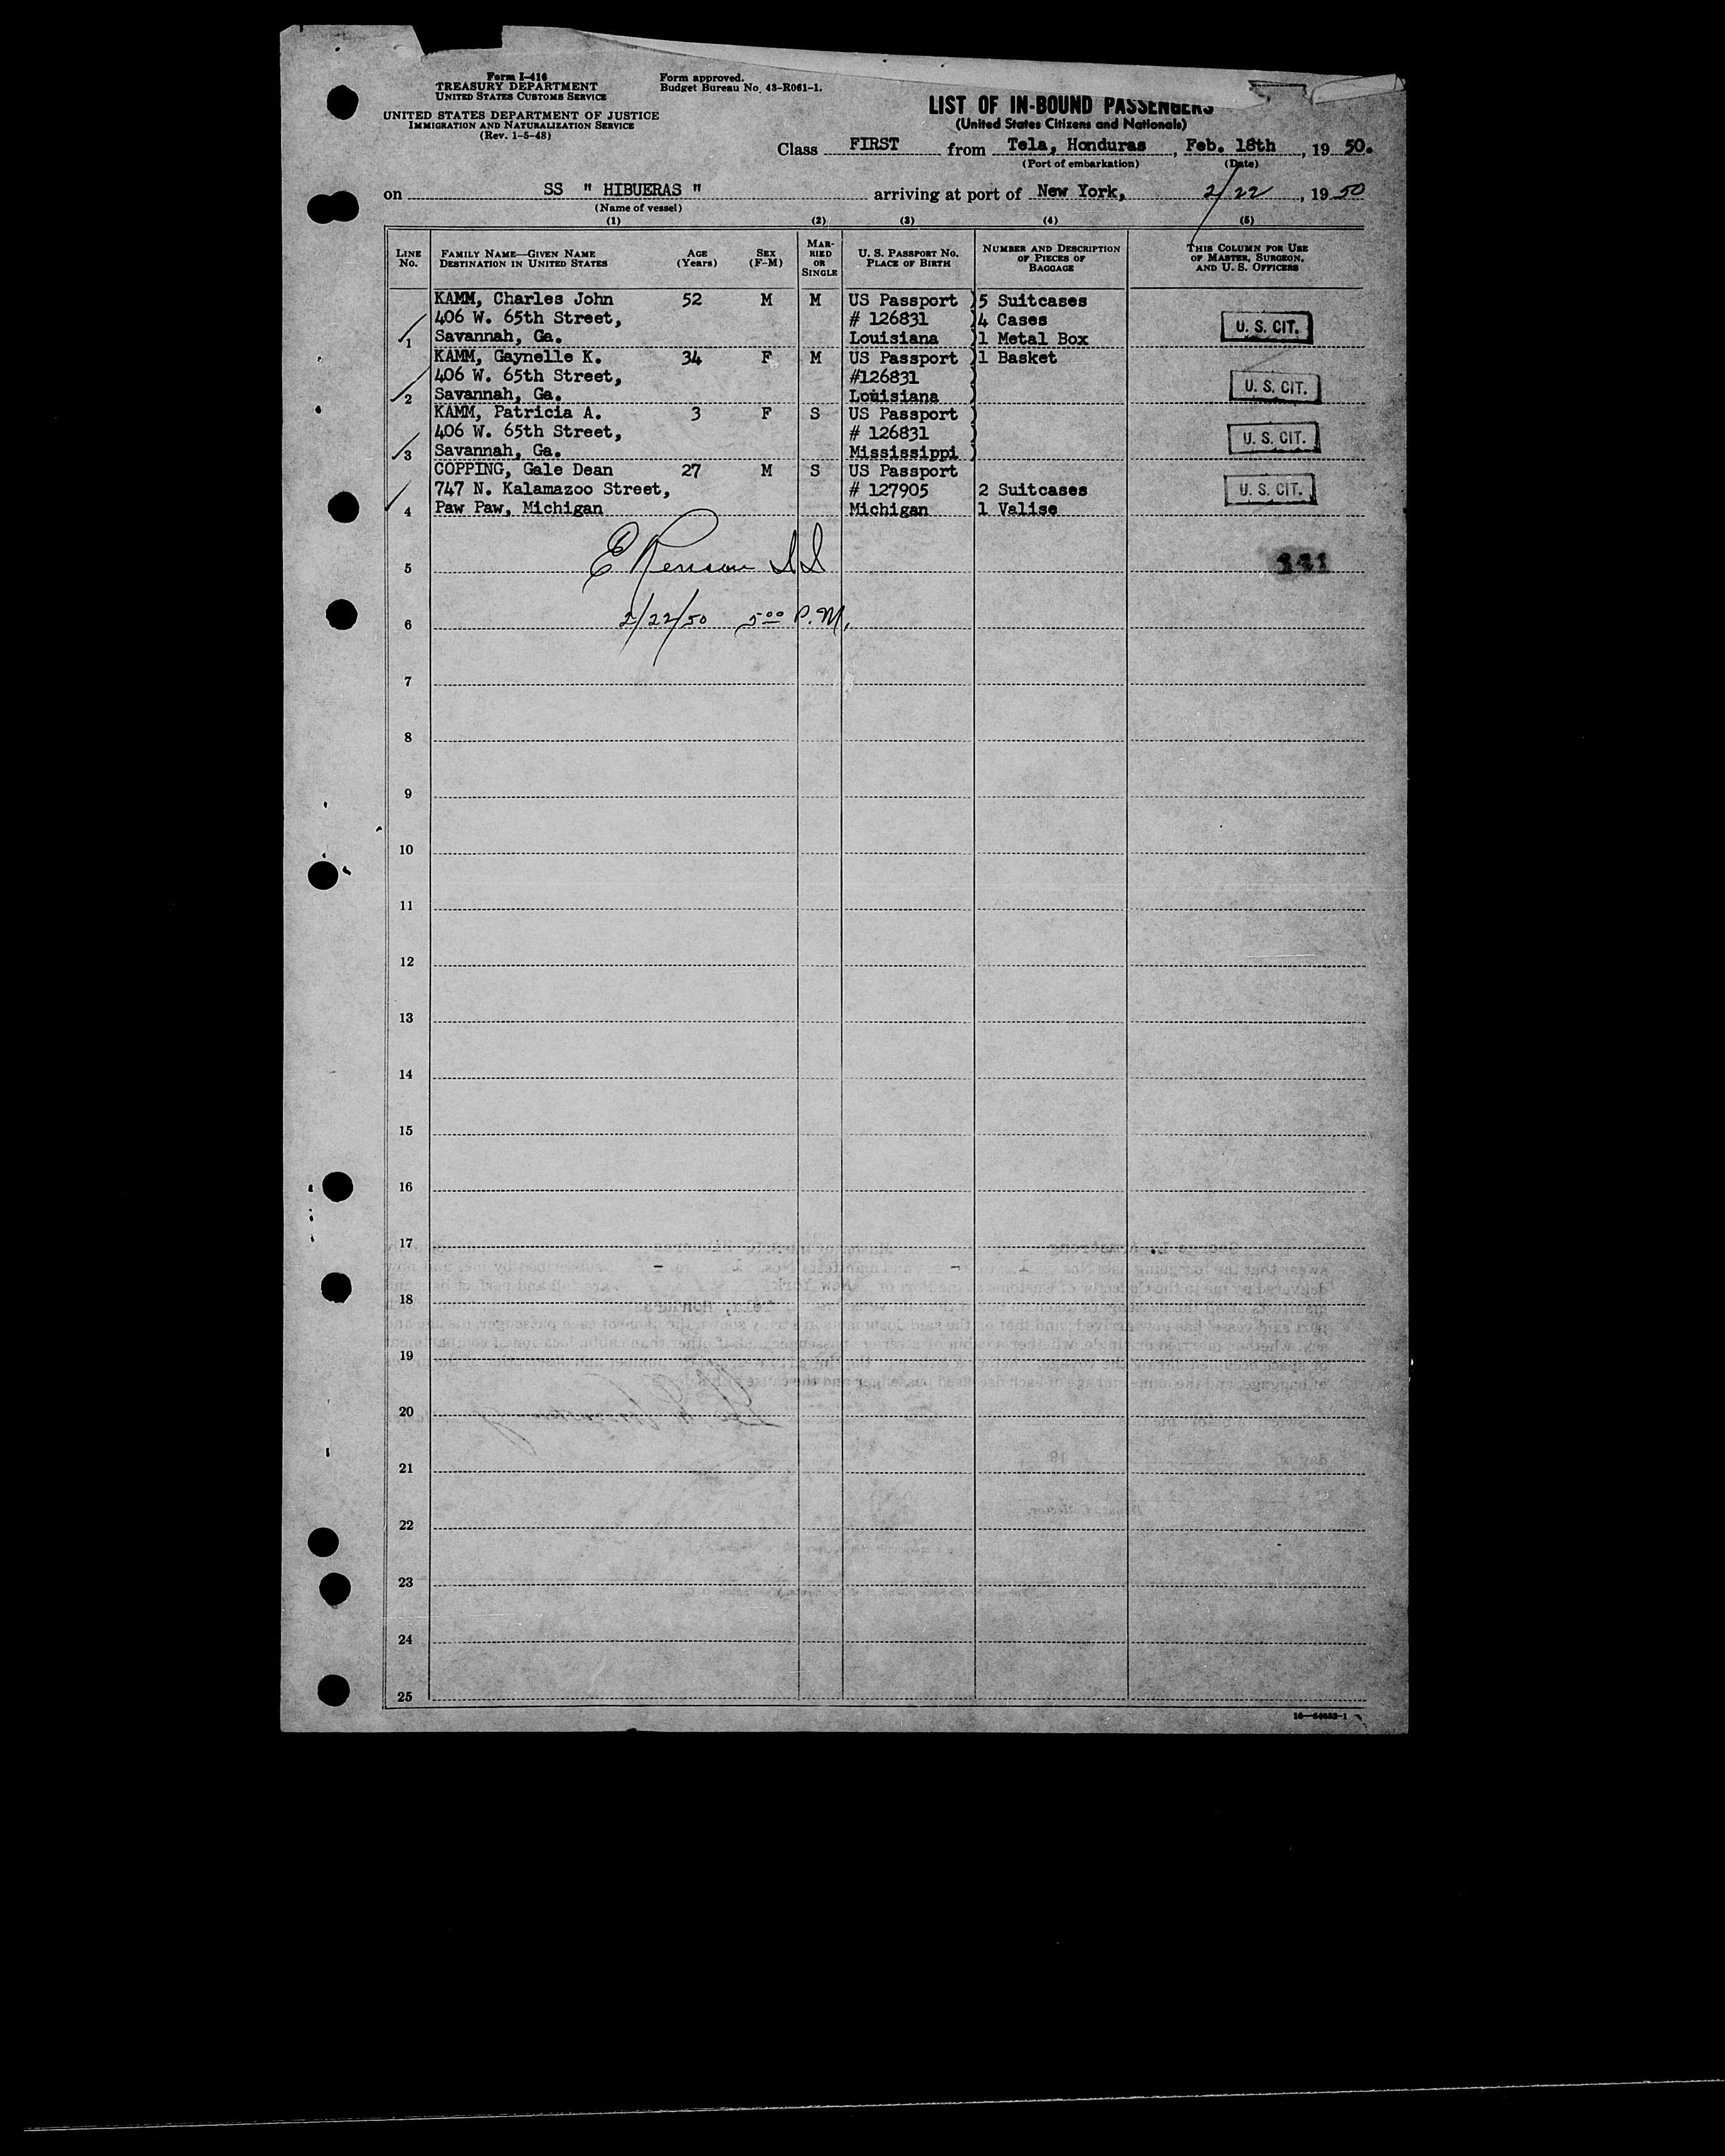 Form I-416
TREASURY DEPARTMENT
UNITED STATES CUSTOMS SERVICE
UNITED STATES DEPARTMENT OF JUSTICE
IMMIGRATION AND NATURALIZATION SERVICE
(Rev. 1-5-48)
Form approved.
Budget Bureau No. 43-R061-1.
LIST OF IN-BOUND PASSENGERS
(United States Citizens and Nationals)
Class FIRST from Tela, Honduras, Feb. 18th, 19 50.
(Port of embarkation) (Date)
on SS " HIBUERAS " arriving at port of New York, 2/22, 19 50
(Name of vessel)
(1) (2) (3) (4) (5)
LINE No. FAMILY NAME—GIVEN NAME DESTINATION IN UNITED STATES AGE (Years) SEX (F-M) MARRIED OR SINGLE U. S. PASSPORT No. PLACE OF BIRTH NUMBER AND DESCRIPTION OF PIECES OF BAGGAGE THIS COLUMN FOR USE OF MASTER, SURGEON, AND U. S. OFFICERS
KAMM, Charles John 52 M M US Passport )5 Suitcases
406 W. 65th Street, # 126831 )4 Cases
1 Savannah, Ga. Louisiana )1 Metal Box U. S. CIT.
KAMM, Gaynelle K. 34 F M US Passport )1 Basket
406 W. 65th Street, #126831 )
2 Savannah, Ga. Louisiana ) U. S. CIT.
KAMM, Patricia A. 3 F S US Passport )
406 W. 65th Street, # 126831 )
3 Savannah, Ga. Mississippi ) U. S. CIT.
COPPING, Gale Dean 27 M S US Passport
747 N. Kalamazoo Street, # 127905 2 Suitcases U. S. CIT.
4 Paw Paw, Michigan Michigan 1 Valise
5
6 2/22/50 5:00 P.M.
7
8
9
10
11
12
13
14
15
16
17
18
19
20
21
22
23
24
25